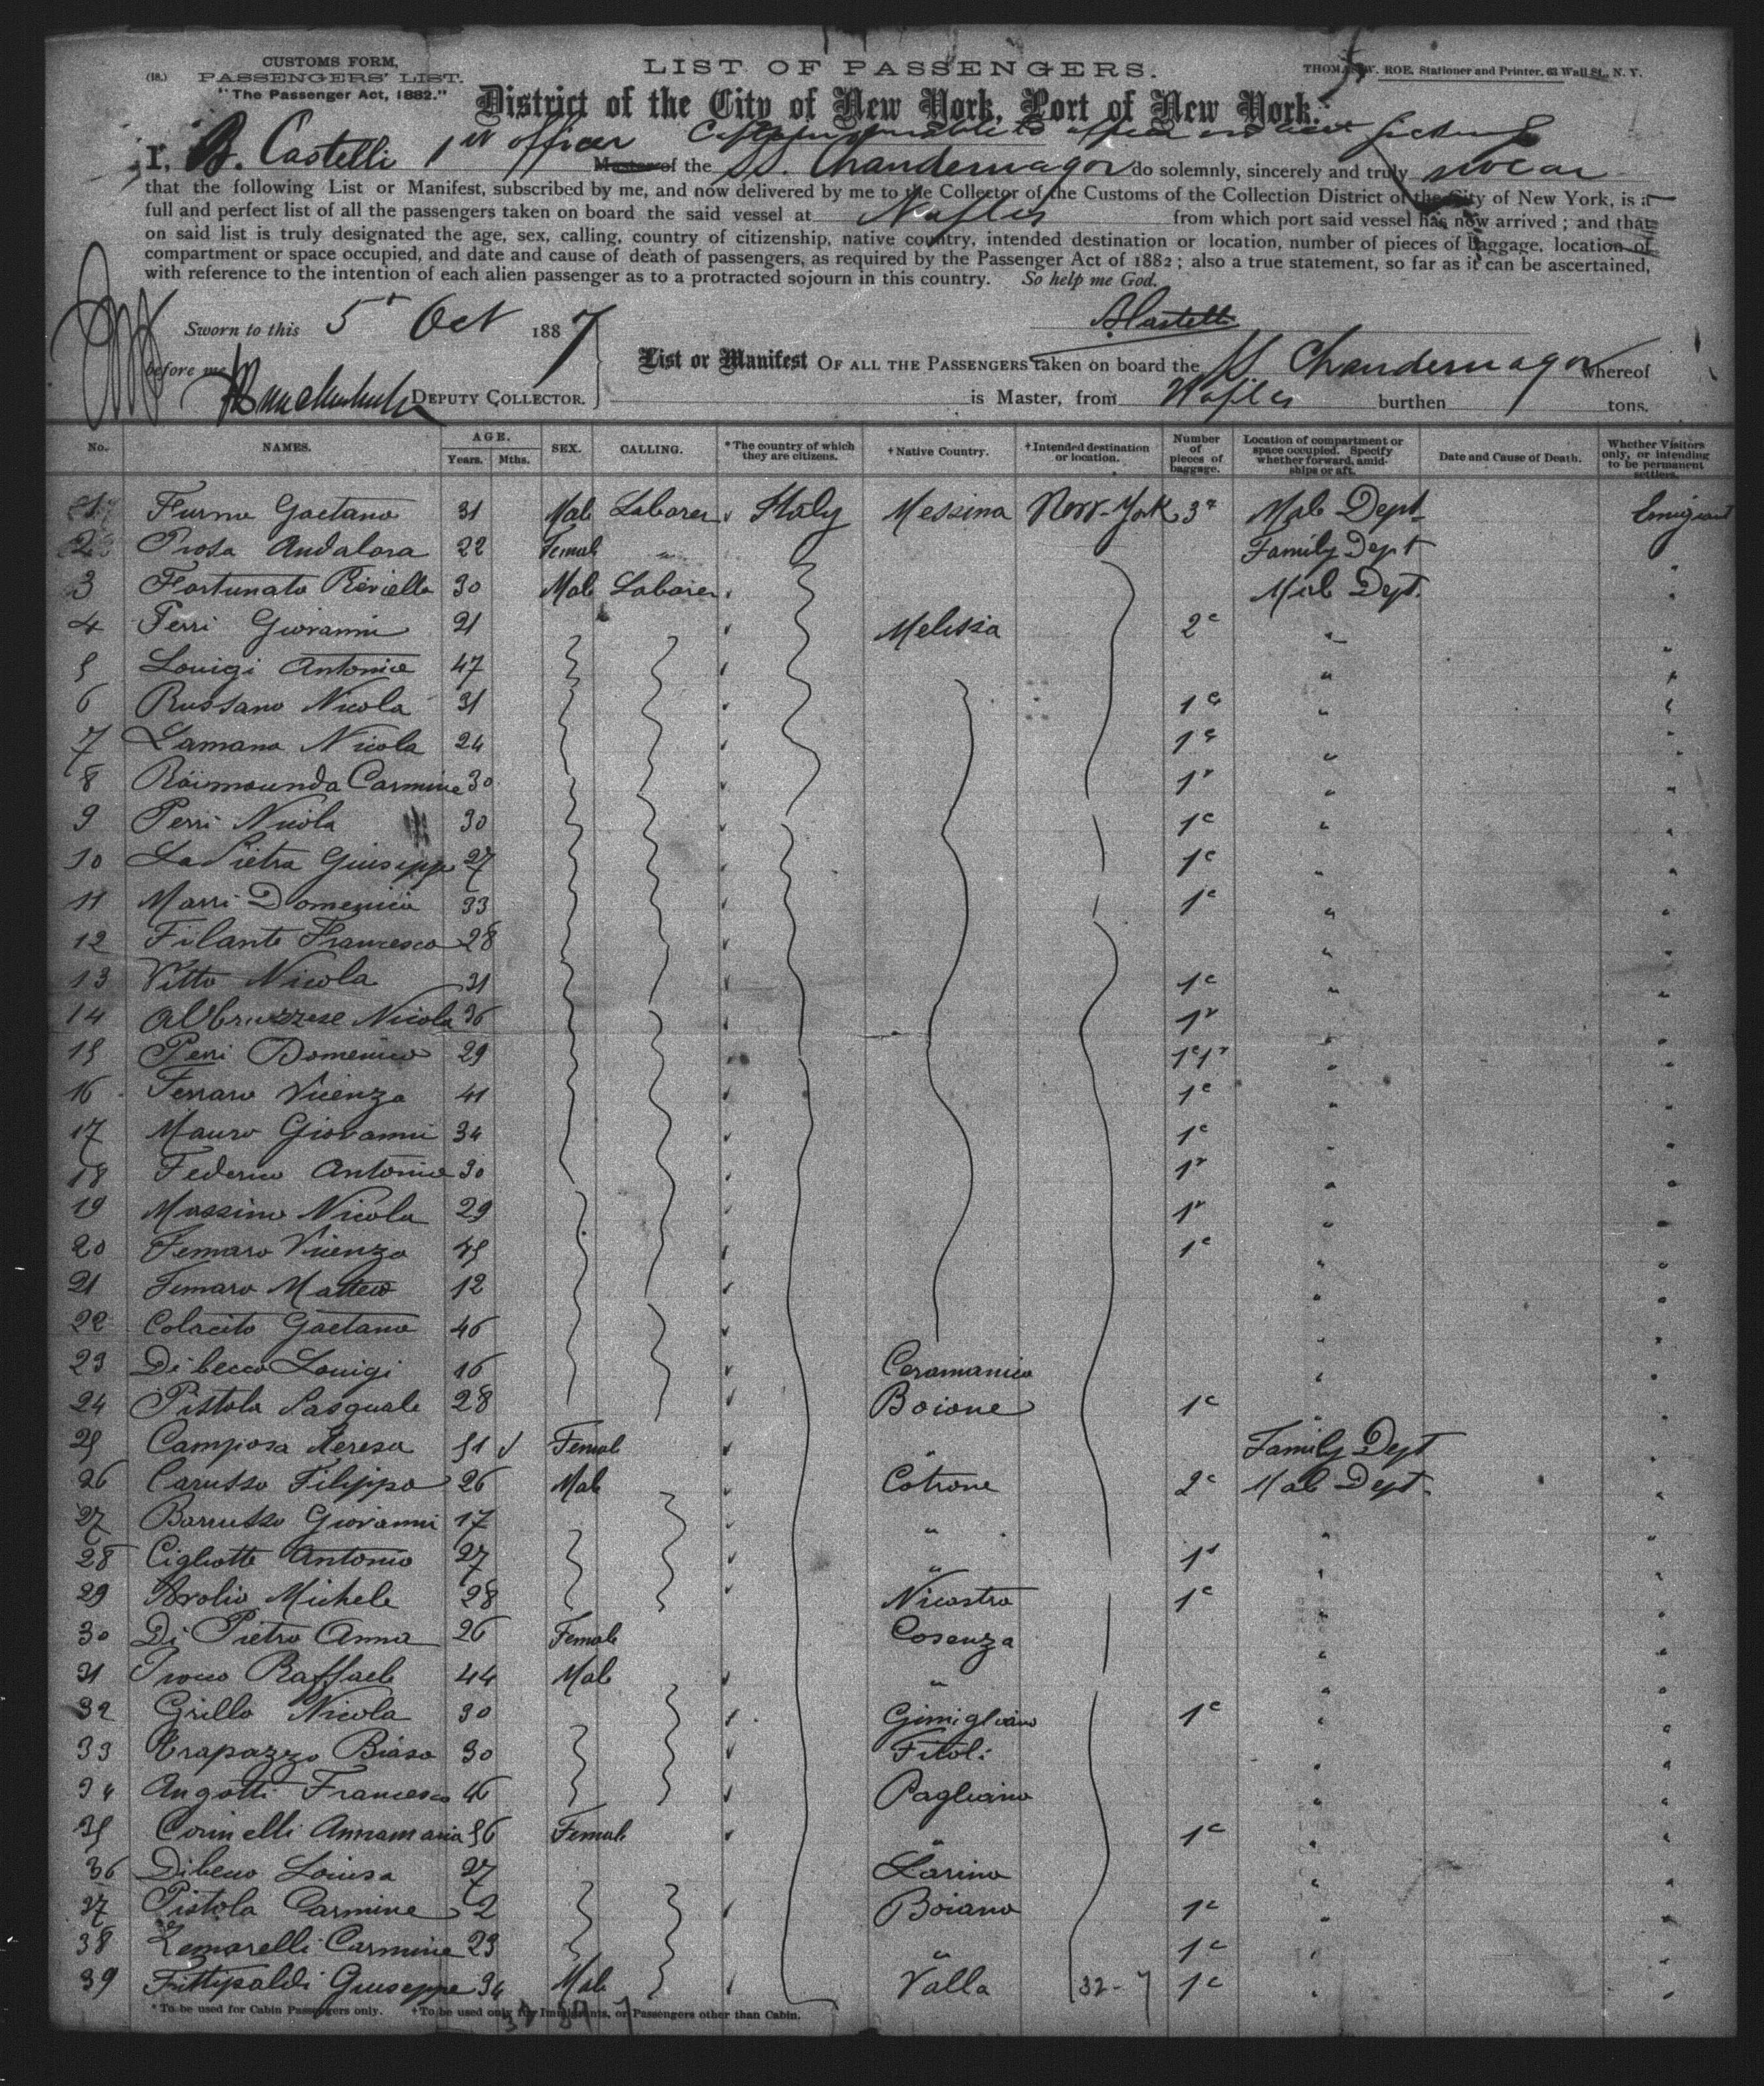 CUSTOMS FORM,
(18.) PASSENGERS' LIST.
"The Passenger Act, 1882."
LIST OF PASSENGERS.
THOMAS W. ROE, Stationer and Printer, 63 Wall St., N. Y.
District of the City of New York, Port of New York.
I, B. Castelli 1st officer Master of the SS. Chandernagor do solemnly, sincerely and truly swear
that the following List or Manifest, subscribed by me, and now delivered by me to the Collector of the Customs of the Collection District of the City of New York, is a
full and perfect list of all the passengers taken on board the said vessel at Naples from which port said vessel has now arrived; and that
on said list is truly designated the age, sex, calling, country of citizenship, native country, intended destination or location, number of pieces of baggage, location of
compartment or space occupied, and date and cause of death of passengers, as required by the Passenger Act of 1882; also a true statement, so far as it can be ascertained,
with reference to the intention of each alien passenger as to a protracted sojourn in this country. So help me God.
B. Castelli
Sworn to this 5 Oct 1887
before me
DEPUTY COLLECTOR.
List or Manifest OF ALL THE PASSENGERS taken on board the SS Chandernagor whereof
is Master, from Naples burthen tons.
No. NAMES. AGE. Years. Mths. SEX. CALLING. *The country of which they are citizens. †Native Country. †Intended destination or location. Number of pieces of baggage. Location of compartment or space occupied. Specify whether forward, amidships or aft. Date and Cause of Death. Whether Visitors only, or intending to be permanent settlers.
1 Furno Gaetano 31 Male Laborer Italy Messina New-York 3 Male Dept Emigrant
2 Prosa Andalora 22 Female " Family Dept
3 Fortunato Riviello 30 Male Laborer Male Dept. "
4 Perri Giovanni 21 Melissa 2c " "
5 Louigi Antonio 47 " "
6 Russano Nicola 31 1c " "
7 Lamana Nicola 24 1c " "
8 Raimounda Carmine 30 1v " "
9 Perri Nicola 30 1c " "
10 La Pietra Giuseppe 27 1c " "
11 Marri Domenico 33 1c " "
12 Filante Francesco 28 " "
13 Vitto Nicola 31 1c " "
14 Albruzzese Nicola 36 1v " "
15 Perri Domenico 29 1c 1v " "
16 Ferraro Vicenzo 41 1c " "
17 Mauro Giovanni 34 1c " "
18 Federico Antonio 30 1v " "
19 Massimo Nicola 29 1v " "
20 Femaro Vicenzo 45 1c " "
21 Femaro Matteo 12 " "
22 Colacito Gaetano 46 " "
23 Dibecco Louigi 16 Ceramanico " "
24 Pistola Pasquale 28 Boione 1c " "
25 Camposa Teresa 51 Female " Family Dept
26 Carusso Filippo 26 Male Cotrone 2c Male Dept. "
27 Barrusso Giovanni 17 " " "
28 Cigliotte Antonio 27 " 1v " "
29 Arolio Michele 28 Nicastro 1c " "
30 Di Pietro Anna 26 Female Cosenza " "
31 Raffaele 44 Male " " "
32 Grillo Nicola 30 Gimigliano 1c " "
33 Trapazzo Biaso 30 Fitoli " "
34 Angotti Francesco 46 Pagliano " "
35 Corinelli Annamaria 56 Female " 1c " "
36 Dibeco Louisa 27 Larino " "
37 Pistola Carmine 2 Boiano 1c " "
38 Zemarelli Carmine 23 " 1c " "
39 Fittipaldi Giuseppe 34 Male Valla 32-7 1c " "
*To be used for Cabin Passengers only. †To be used only for Immigrants, or Passengers other than Cabin.